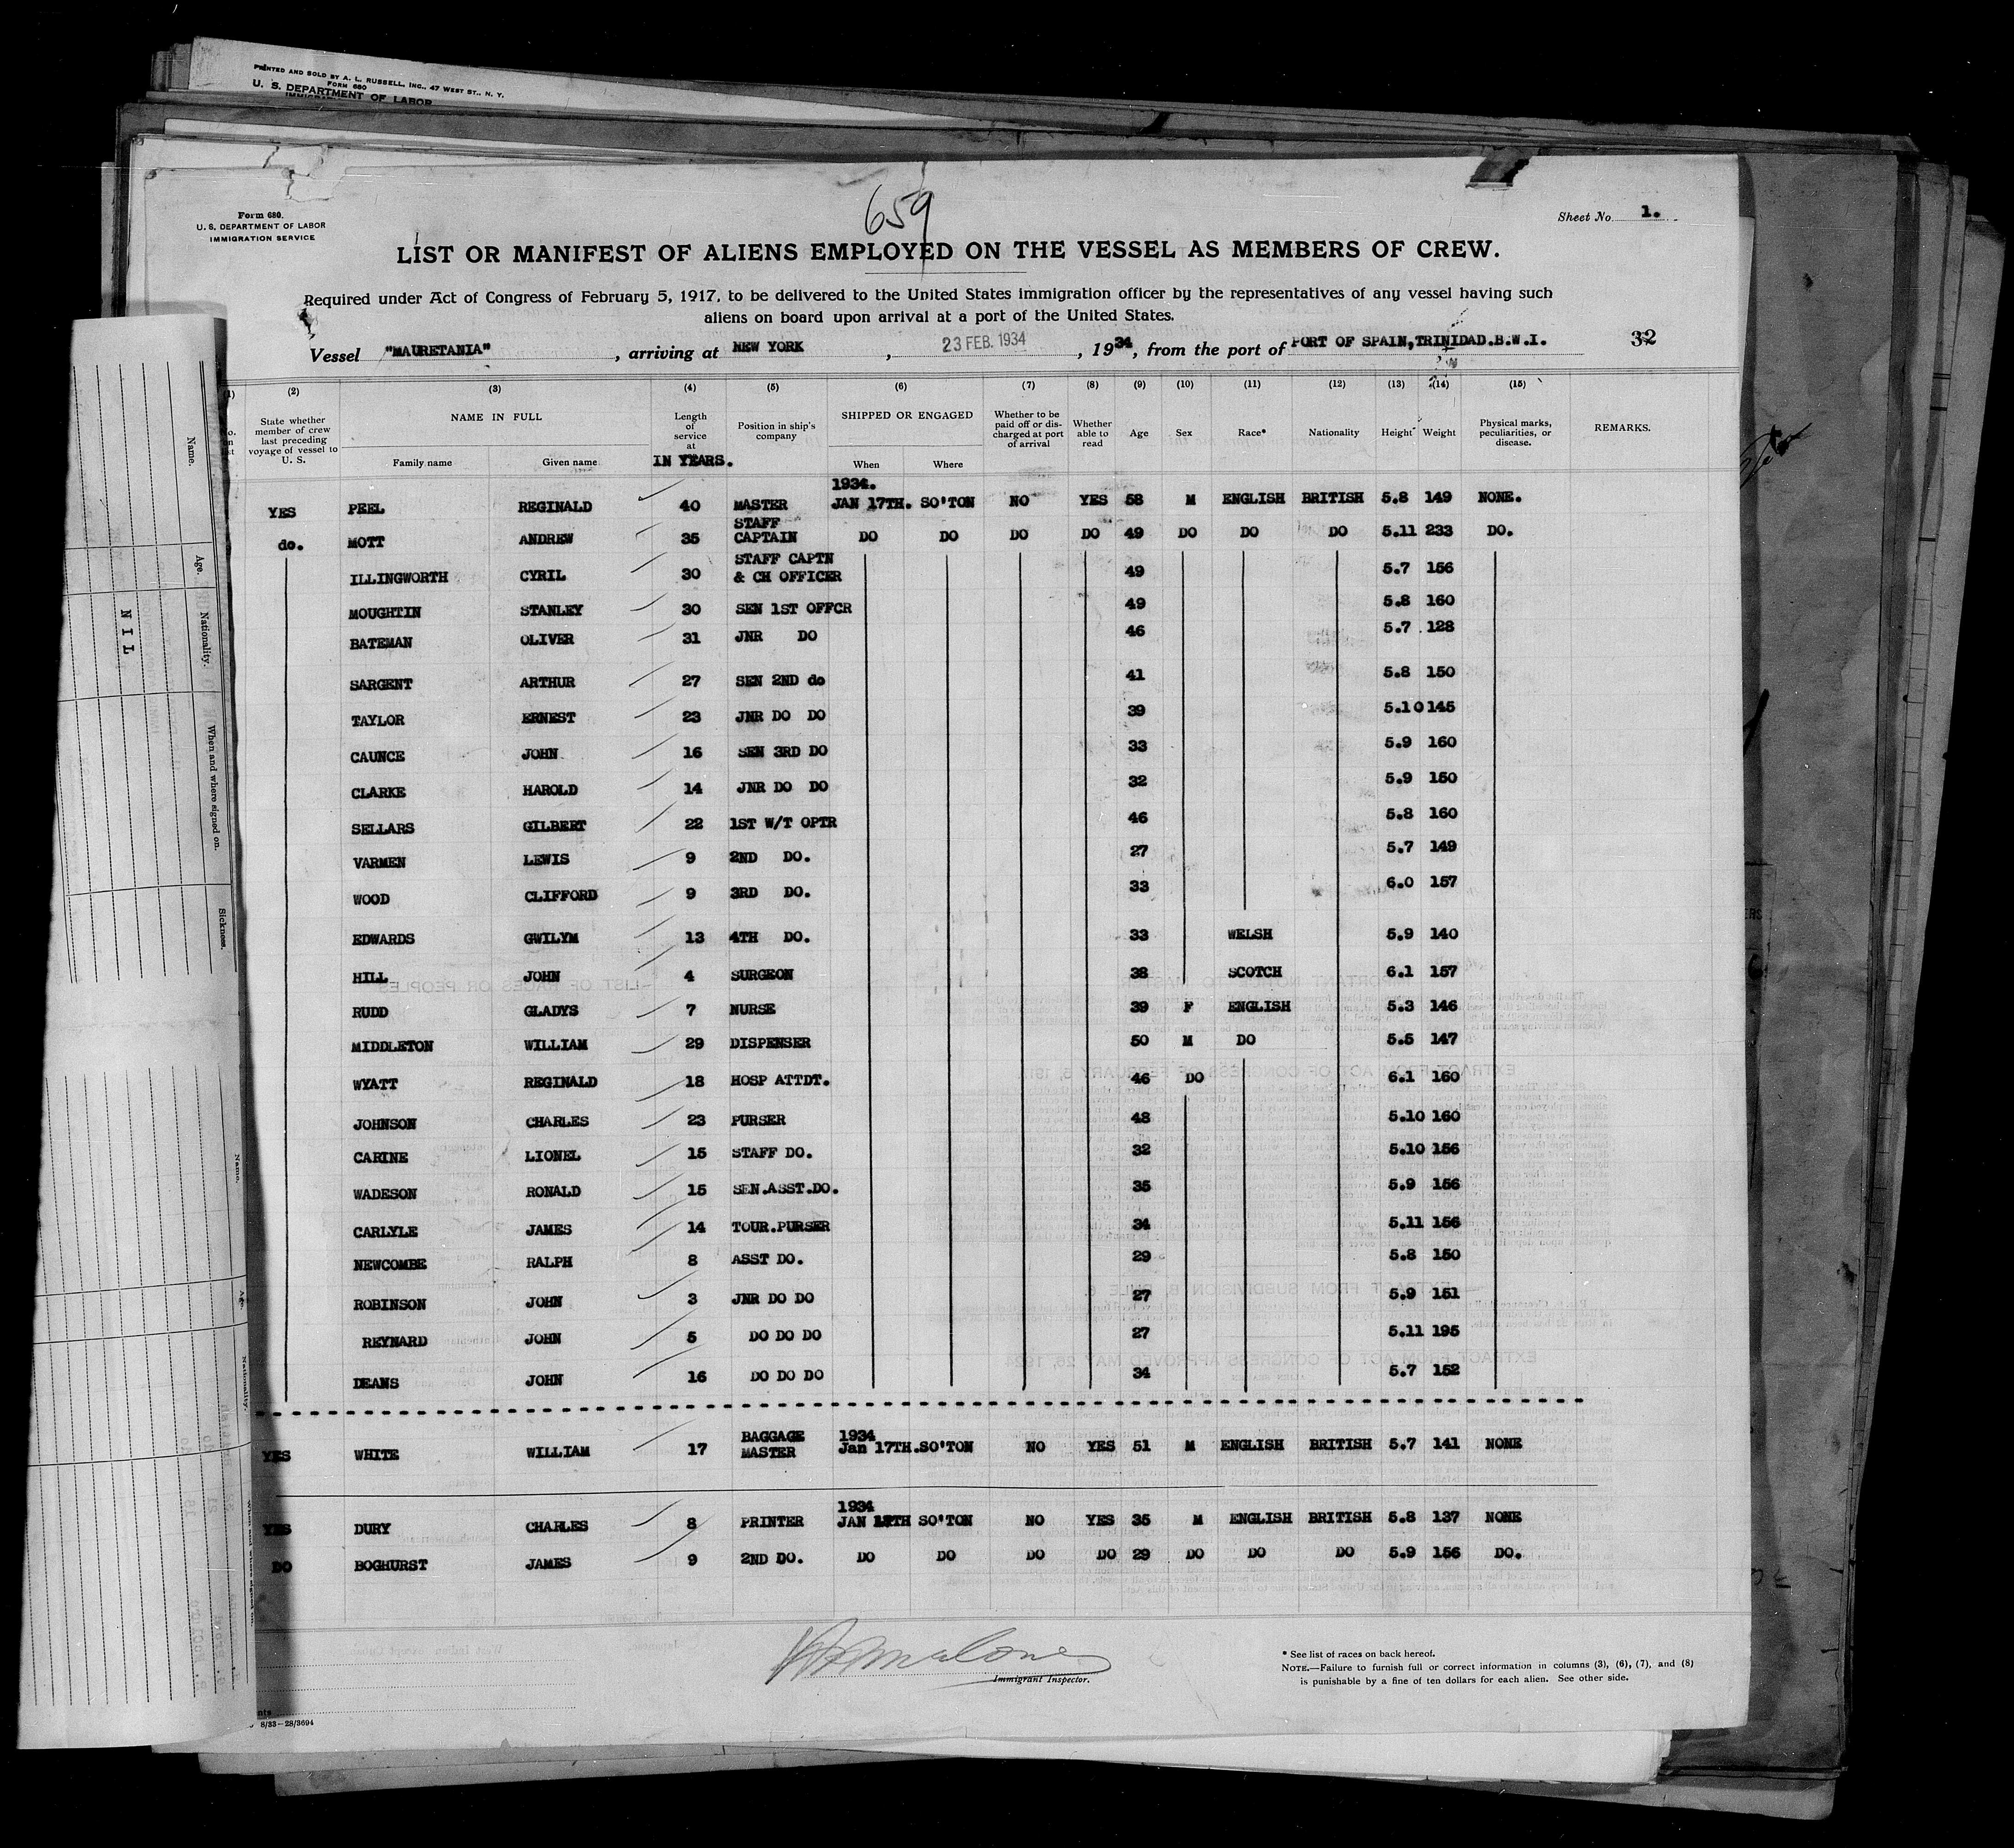 PRINTED AND SOLD BY A. L. RUSSELL, INC., 47 WEST ST., N. Y.
FORM 680
U. S. DEPARTMENT OF LABOR
659
Form 680.
U. S. DEPARTMENT OF LABOR
IMMIGRATION SERVICE
Sheet No. 1.
LIST OR MANIFEST OF ALIENS EMPLOYED ON THE VESSEL AS MEMBERS OF CREW.
Required under Act of Congress of February 5, 1917, to be delivered to the United States immigration officer by the representatives of any vessel having such
aliens on board upon arrival at a port of the United States.
Vessel "MAURETANIA", arriving at NEW YORK, 23 FEB. 1934, 1934, from the port of PORT OF SPAIN,TRINIDAD.B.W.I. 32
(1) (2) (3) (4) (5) (6) (7) (8) (9) (10) (11) (12) (13) (14) (15)
State whether member of crew last preceding voyage of vessel to U. S. NAME IN FULL Family name Given name Length of service at IN YEARS. Position in ship's company SHIPPED OR ENGAGED When Where Whether to be paid off or discharged at port of arrival Whether able to read Age Sex Race* Nationality Height Weight Physical marks, peculiarities, or disease. REMARKS.
1934.
YES PEEL REGINALD 40 MASTER JAN 17TH. SO'TON NO YES 58 M ENGLISH BRITISH 5.8 149 NONE.
do. MOTT ANDREW 35 STAFF CAPTAIN DO DO DO DO 49 DO DO DO 5.11 233 DO.
ILLINGWORTH CYRIL 30 STAFF CAPTN & CH OFFICER 49 5.7 156
MOUGHTIN STANLEY 30 SEN 1ST OFFCR 49 5.8 160
BATEMAN OLIVER 31 JNR DO 46 5.7 128
SARGENT ARTHUR 27 SEN 2ND do 41 5.8 150
TAYLOR ERNEST 23 JNR DO DO 39 5.10 145
CAUNCE JOHN 16 SEN 3RD DO 33 5.9 160
CLARKE HAROLD 14 JNR DO DO 32 5.9 150
SELLARS GILBERT 22 1ST W/T OPTR 46 5.8 160
VARMEN LEWIS 9 2ND DO. 27 5.7 149
WOOD CLIFFORD 9 3RD DO. 33 6.0 157
EDWARDS GWILYM 13 4TH DO. 33 WELSH 5.9 140
HILL JOHN 4 SURGEON 38 SCOTCH 6.1 157
RUDD GLADYS 7 NURSE 39 F ENGLISH 5.3 146
MIDDLETON WILLIAM 29 DISPENSER 50 M DO 5.5 147
WYATT REGINALD 18 HOSP ATTDT. 46 DO 6.1 160
JOHNSON CHARLES 23 PURSER 48 5.10 160
CARINE LIONEL 15 STAFF DO. 32 5.10 156
WADESON RONALD 15 SEN.ASST.DO. 35 5.9 156
CARLYLE JAMES 14 TOUR.PURSER 34 5.11 156
NEWCOMBE RALPH 8 ASST DO. 29 5.8 150
ROBINSON JOHN 3 JNR DO DO 27 5.9 151
REYNARD JOHN 5 DO DO DO 27 5.11 195
DEANS JOHN 16 DO DO DO 34 5.7 152
1934
YES WHITE WILLIAM 17 BAGGAGE MASTER Jan 17TH.SO'TON NO YES 51 M ENGLISH BRITISH 5.7 141 NONE
1934
YES DURY CHARLES 8 PRINTER JAN 17TH SO'TON NO YES 35 M ENGLISH BRITISH 5.8 137 NONE
DO BOGHURST JAMES 9 2ND DO. DO DO DO DO 29 DO DO DO 5.9 156 DO.
Immigrant Inspector.
* See list of races on back hereof.
NOTE.—Failure to furnish full or correct information in columns (3), (6), (7), and (8)
is punishable by a fine of ten dollars for each alien. See other side.
8/33—28/3694
Name.
Age.
Nationality.
When and where signed on.
Sickness.
NIL
Name.
Age.
Nationality.